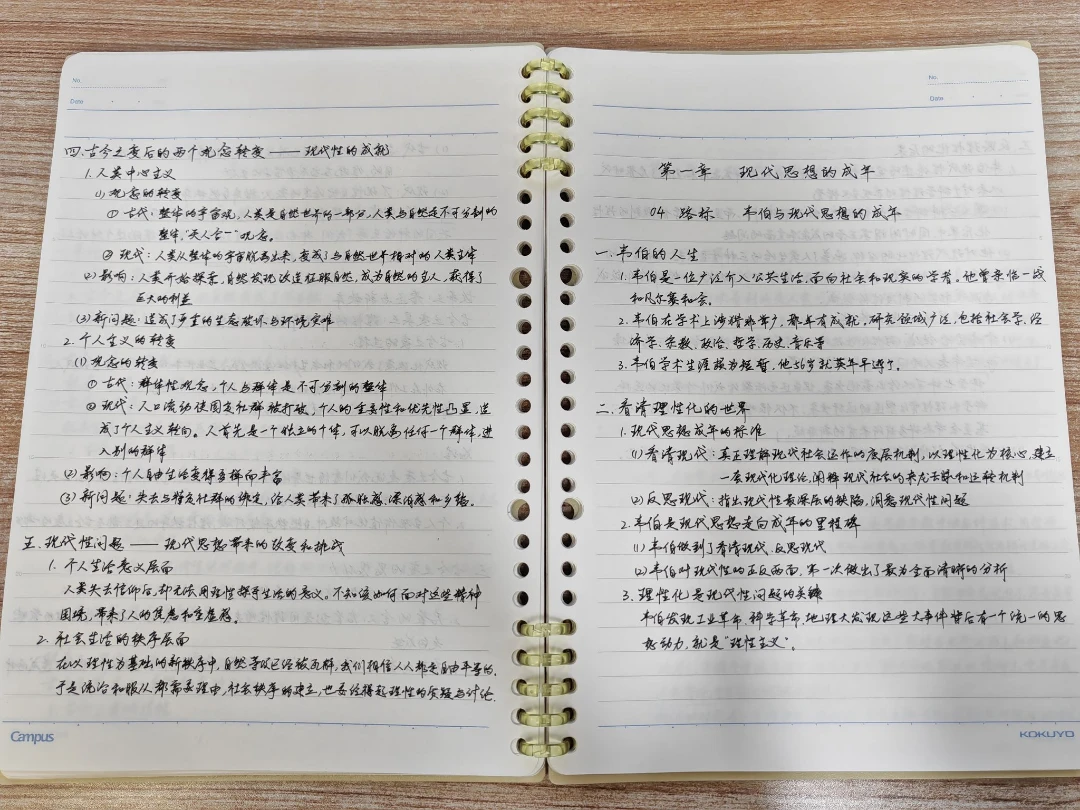 No.
Date
四.古今之变后的两个观念转变——现代性的成就
1.人类中心主义
(1)观念的转变
①古代:整体的宇宙观,人类是自然世界的一部分,人类与自然是不可分割的
整体,"天人合一"观念。
②现代:人类从整体的宇宙脱离出来,变成了与自然世界相对的人类主体
(2)影响:人类开始探索,自然发现改造征服自然,成为自然的主人,获得了
巨大的利益
(3)新问题:造成了严重的生态破坏与环境灾难
2.个人主义的转变
(1)观念的转变
①古代:群体性观念,个人与群体是不可分割的整体
②现代:人口流动使固定社群被打破,个人的重要性和优先性凸显,造
成了个人主义转向。人首先是一个独立的个体,可以脱离任何一个群体,进
入别的群体
(2)影响:个人自由生活变得多样而丰富
(3)新问题:失去与特定社群的绑定,给人类带来了孤独感、漂泊感和乡愁。
五.现代性问题——现代思想带来的改变和挑战
1.个人生活意义层面
人类失去信仰后,却无法用理性探寻生活的意义。不知道如何面对这些精神
困境,带来了人的焦虑和空虚感。
2.社会生活的秩序层面
在以理性为基础的新秩序中,自然等级已经被瓦解,我们相信人人都是自由平等的,
于是统治和服从都需要理由,社会秩序的建立,也要经得起理性的质疑与讨论.
Campus
No.
Date
第一章 现代思想的成年
04 路标 韦伯与现代思想的成年
一.韦伯的人生
1.韦伯是一位广泛介入公共生活,面向社会和现实的学者。他曾亲临一战
和凡尔赛和会。
2.韦伯在学术上涉猎非常广,都卓有成就。研究领域广泛,包括社会学、经
济学、宗教、政治、哲学、历史、音乐等
3.韦伯学术生涯极为短暂,他56岁就英年早逝了。
二.看清理性化的世界
1.现代思想成年的标准
(1)看清现代:真正理解现代社会运作的底层机制,以理性化为核心,建立
一套现代化理论,阐释现代社会的来龙去脉和运转机制
(2)反思现代:指出现代性最深层的缺陷,洞悉现代性问题
2.韦伯是现代思想走向成年的里程碑
(1)韦伯做到了看清现代、反思现代
(2)韦伯对现代性的正反两面,第一次做出了最为全面清晰的分析
3.理性化是现代性问题的关键
韦伯发现工业革命、科学革命、地理大发现这些大事件背后有一个统一的思
想动力,就是"理性主义"。
KOKUYO